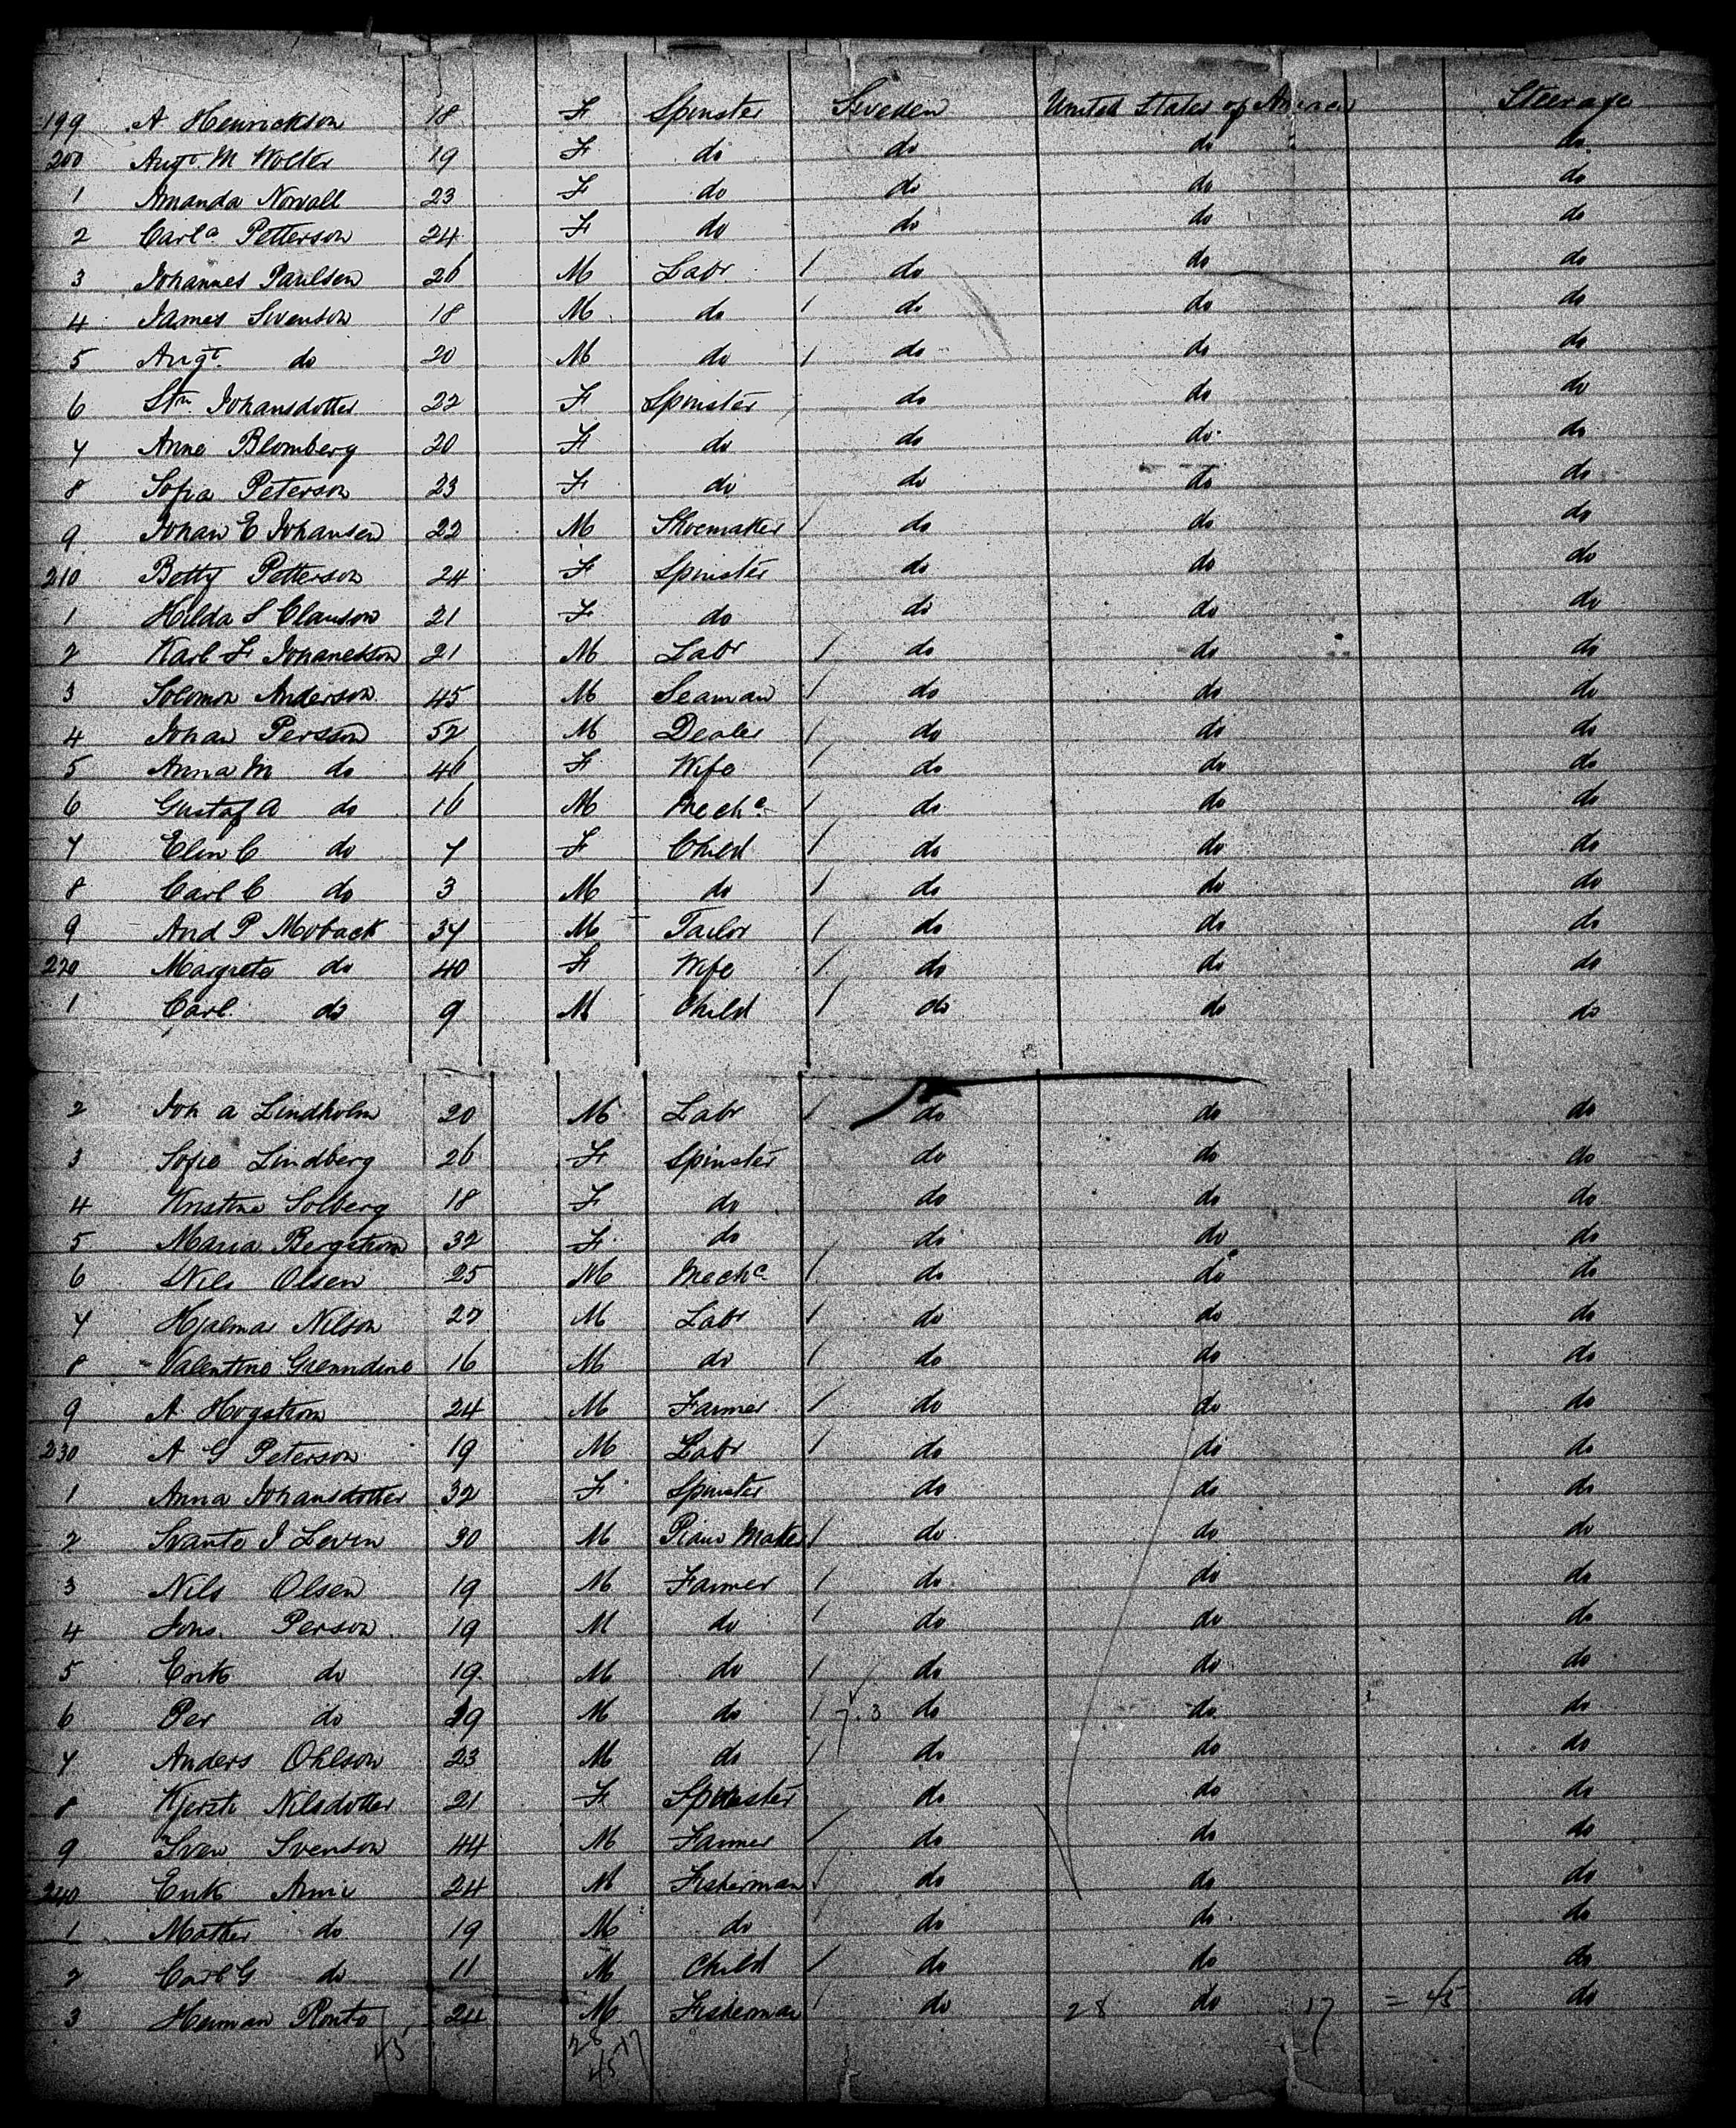 199 A Henrickson 18 F Spinster Sweden United States of America Steerage
200 Augt. M Wolter 19 F do do do do.
1 Amanda Norvall 23 F do do do do
2 Carla Petterson 24 F do do do do
3 Johannes Paulsen 26 M Labr. / do do do
4 James Svenson 18 M do / do do do
5 Augt. do 20 M do / do do do
6 Stn. Johansdotter 22 F Spinster do do do
7 Anna Blomberg 20 F do do do do
8 Sofia Peterson 23 F do do do do
9 Johan E Johansen 22 M Shoemaker / do do do
210 Betty Petterson 24 F Spinster do do do
1 Hilda S Clauson 21 F do do do do
2 Karl F Johanesson 21 M Labr / do do do
3 Solomon Anderson 45 M Seaman / do do do
4 Johan Persson 52 M Dealer / do do do
5 Anna M do 46 F Wife / do do do
6 Gustaf A do 16 M Mechc. / do do do
7 Elin C do 7 F Child / do do do
8 Carl C do 3 M do / do do do
9 And P Moback 37 M Tailor / do do do
220 Margreta do 40 F Wife / do do do
1 Carl do 9 M Child / do do do
2 Joh A Lindholm 20 M Labr / do do do
3 Sofie Lindberg 26 F Spinster do do do
4 Kristine Solberg 18 F do do do do
5 Maria Bergstrom 32 F do do do do
6 Nils Olsen 25 M Mechc / do do do
7 Hjalmar Nilson 27 M Labr / do do do
8 Valentine 16 M do / do do do
9 A Hogstrom 24 M Farmer / do do do
230 A G Peterson 19 M Labr / do do do
1 Anna Johansdotter 32 F Spinster do do do
2 Svante J Levin 30 M Piano Maker / do do do
3 Nils Olsen 19 M Farmer / do do do
4 Jons. Person 19 M do / do do do
5 Erik do 19 M do / do do do
6 Per do 19 M do / do do do
7 Anders Ohlson 23 M do / do do do
8 Kjersti Nilsdotter 21 F Spinster do do do
9 Sven Svenson 44 M Farmer / do do do
240 Erik 24 M Fisherman / do do do
1 Mather do 19 M do do do do
2 Carl G do 11 M Child / do do do
3 Herman 24 M Fisherman / do 28 do 17 = 45 do
45 28 17
45